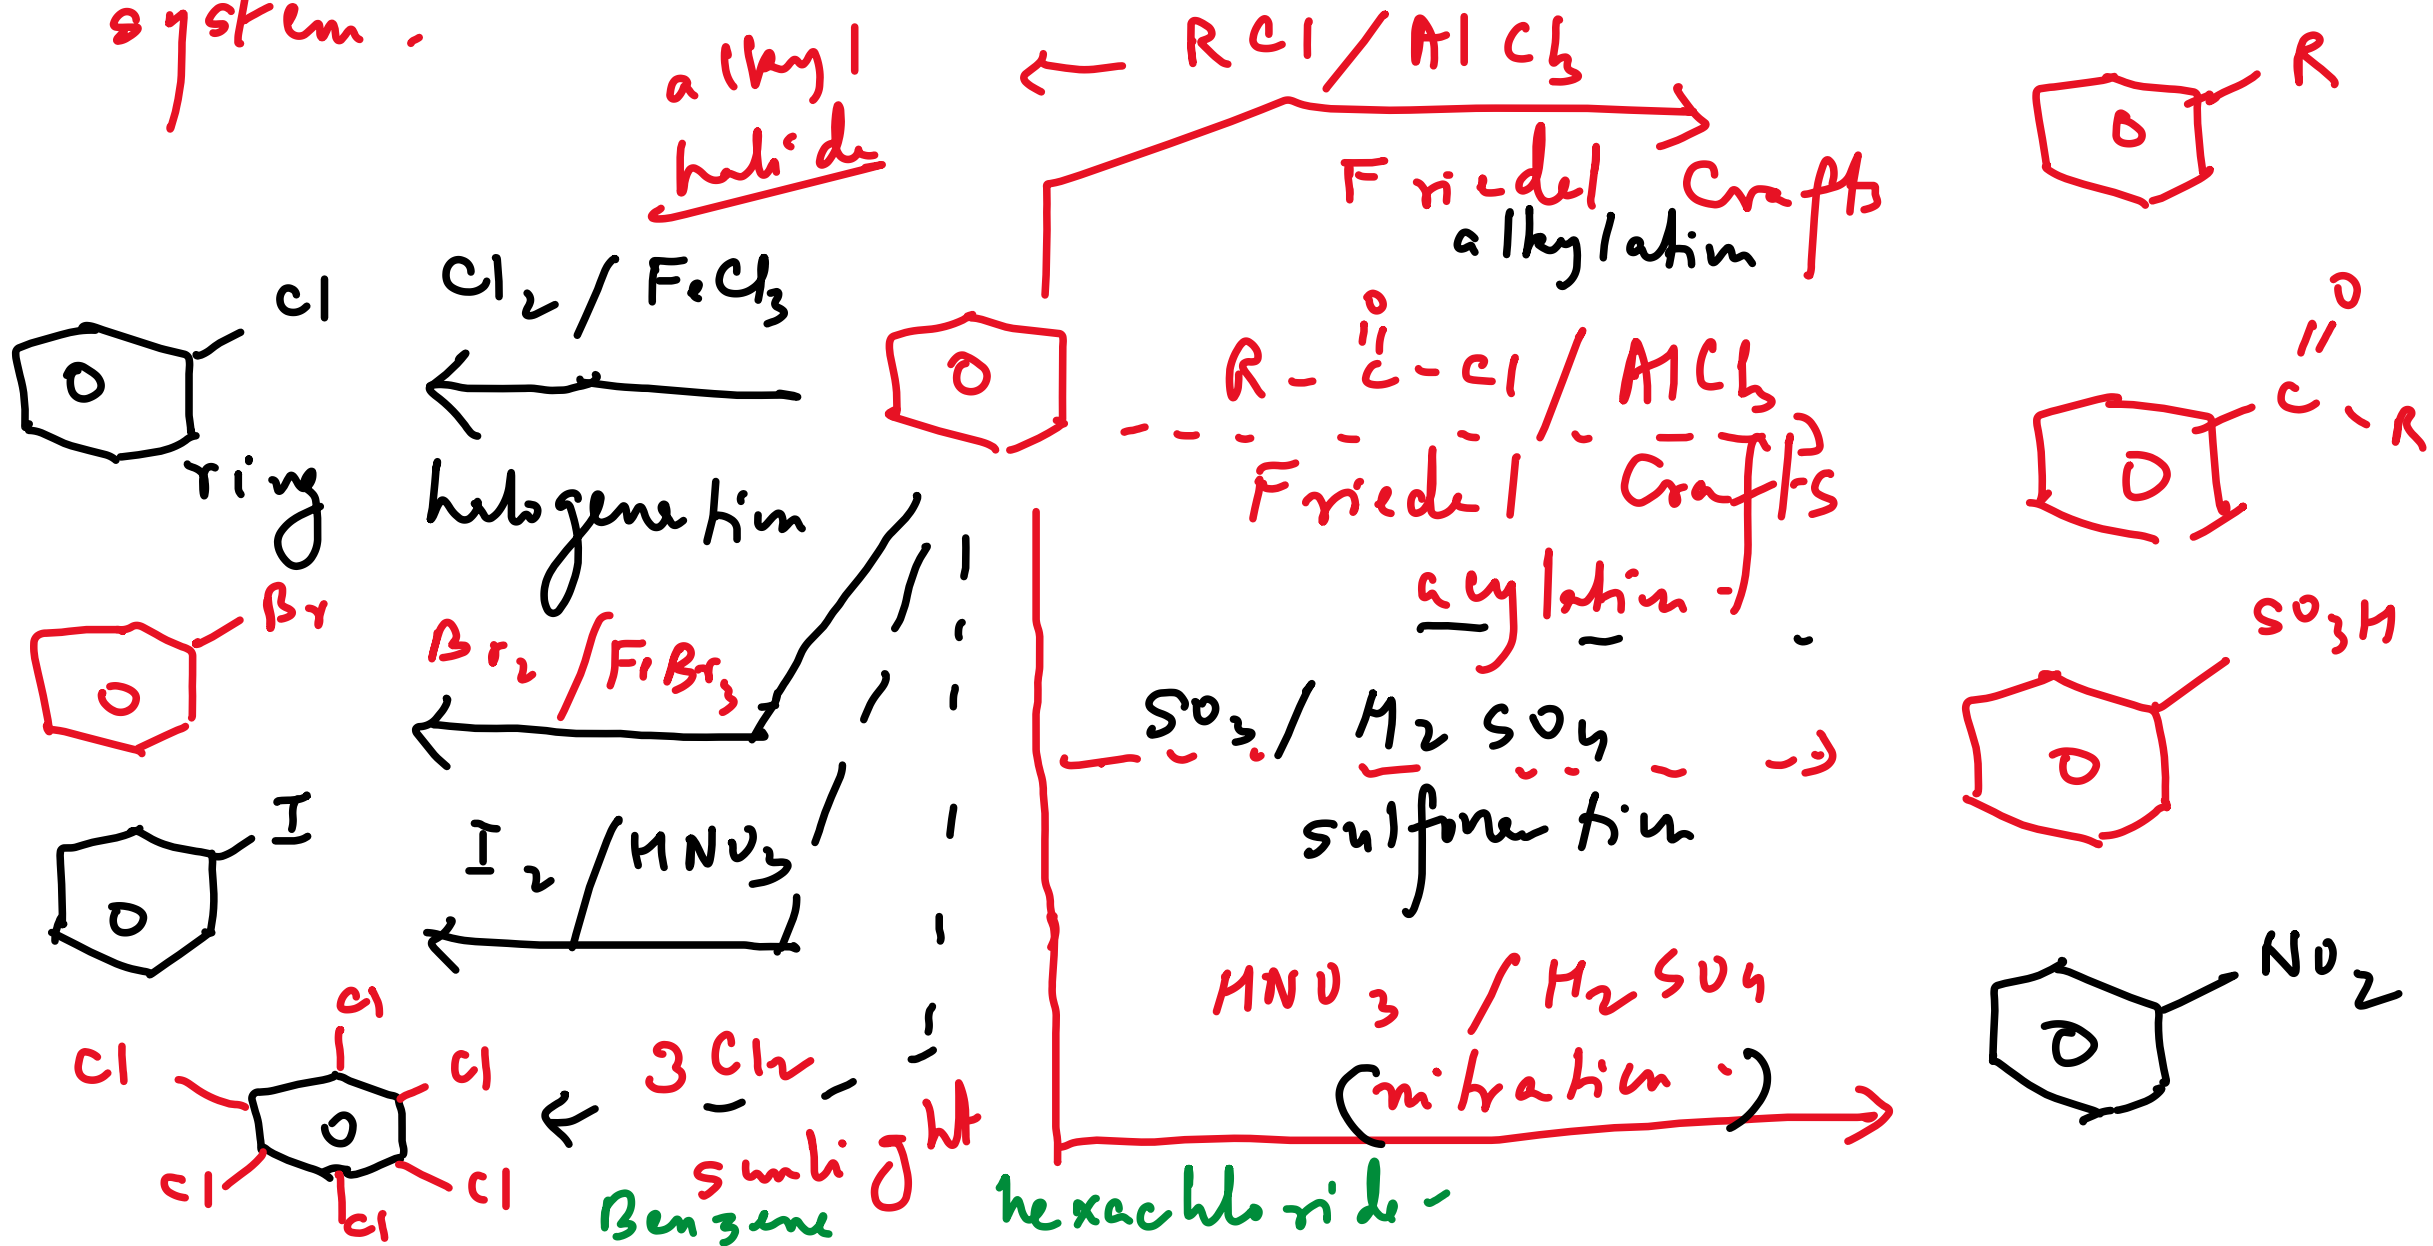 system.
alkyl
halide
RCl/AlCl3
R
Friedel Crafts
alkylation
Cl
Cl2/FeCl3
ring halogenation
O
R-C-Cl/AlCl3
Friedel Crafts
acylation
O
C-R
Br
Br2/FeBr3
SO3/H2SO4
sulfonation
SO3H
I
I2/HNO3
HNO3/H2SO4
(nitration)
NO2
Cl
Cl
Cl
Cl
Cl
Cl
3Cl2
sunlight
Benzene hexachloride